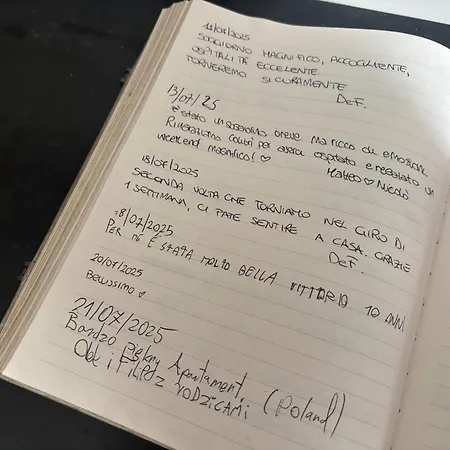 11/07/2025
SOGGIORNO MAGNIFICO, ACCOGLIENTE,
OSPITALITÀ ECCELENTE.
TORNEREMO SICURAMENTE
D e F.
13/07/25
È stato un soggiorno breve ma ricco di emozioni.
Ringraziamo per averci ospitato e regalato un
weekend magnifico! ♡ Matteo ♡ Nicolò
18/07/2025
SECONDA VOLTA CHE TORNIAMO NEL GIRO DI
1 SETTIMANA, CI FATE SENTIRE A CASA. GRAZIE
D e F.
18/07/2025
PER ME È STATA MOLTO BELLA VITTORIO 10 ANNI
20/07/2025
Bellissimo ♡
21/07/2025
Bardzo Piękny Apartament, (Poland)
i FILIP z RODZICAMI